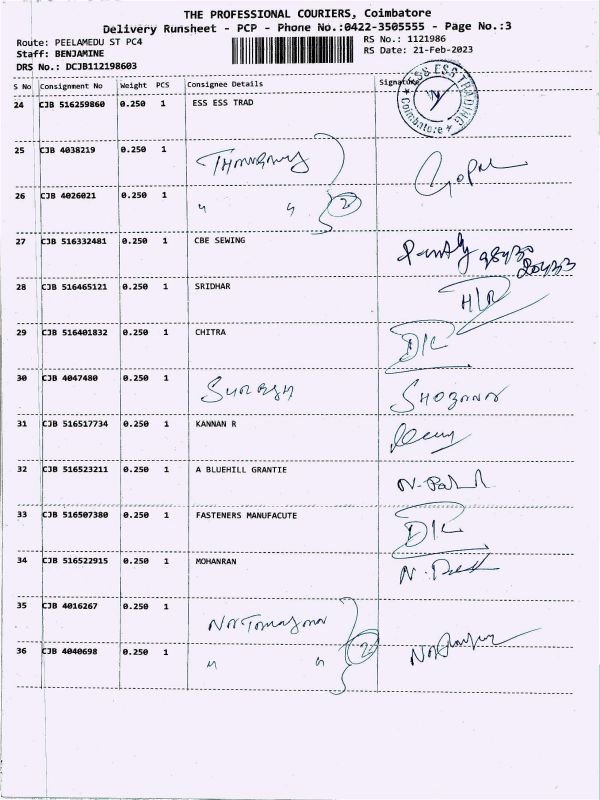 THE PROFESSIONAL COURIERS, Coimbatore
Delivery Runsheet - PCP - Phone No.:0422-3505555 - Page No.:3
Route: PEELAMEDU ST PC4 RS No.: 1121986
Staff: BENJAMINE RS Date: 21-Feb-2023
DRS No.: DCJB112198603
S No Consignment No Weight PCS Consignee Details Signature
24 CJB 516259860 0.250 1 ESS ESS TRAD
ESS ESS TRADING
Coimbatore
25 CJB 4038219 0.250 1 Gopal
26 CJB 4026021 0.250 1 " " 2
27 CJB 516332481 0.250 1 CBE SEWING
28 CJB 516465121 0.250 1 SRIDHAR H/R
29 CJB 516401832 0.250 1 CHITRA D/L
30 CJB 4047480 0.250 1 SURESH SHOBANA
31 CJB 516517734 0.250 1 KANNAN R
32 CJB 516523211 0.250 1 A BLUEHILL GRANTIE
33 CJB 516507380 0.250 1 FASTENERS MANUFACUTE D/L
34 CJB 516522915 0.250 1 MOHANRAN
35 CJB 4016267 0.250 1
36 CJB 4040698 0.250 1 " " 2